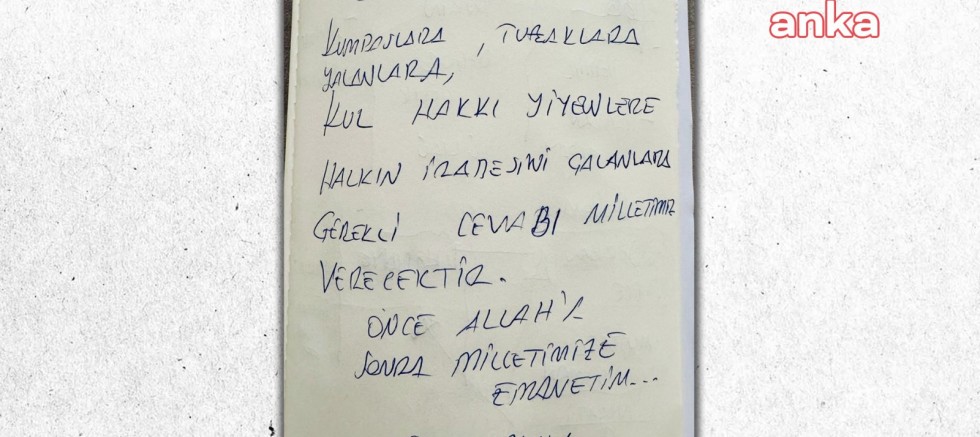 anka
KUMPASLARA, TUZAKLARA
YALANLARA,
KUL HAKKI YİYENLERE
HALKIN İRADESİNİ ÇALANLARA
GEREKLİ CEVABI MİLLETİMİZ
VERECEKTİR.
ÖNCE ALLAH'A
SONRA MİLLETİMİZE
EMANETİM...